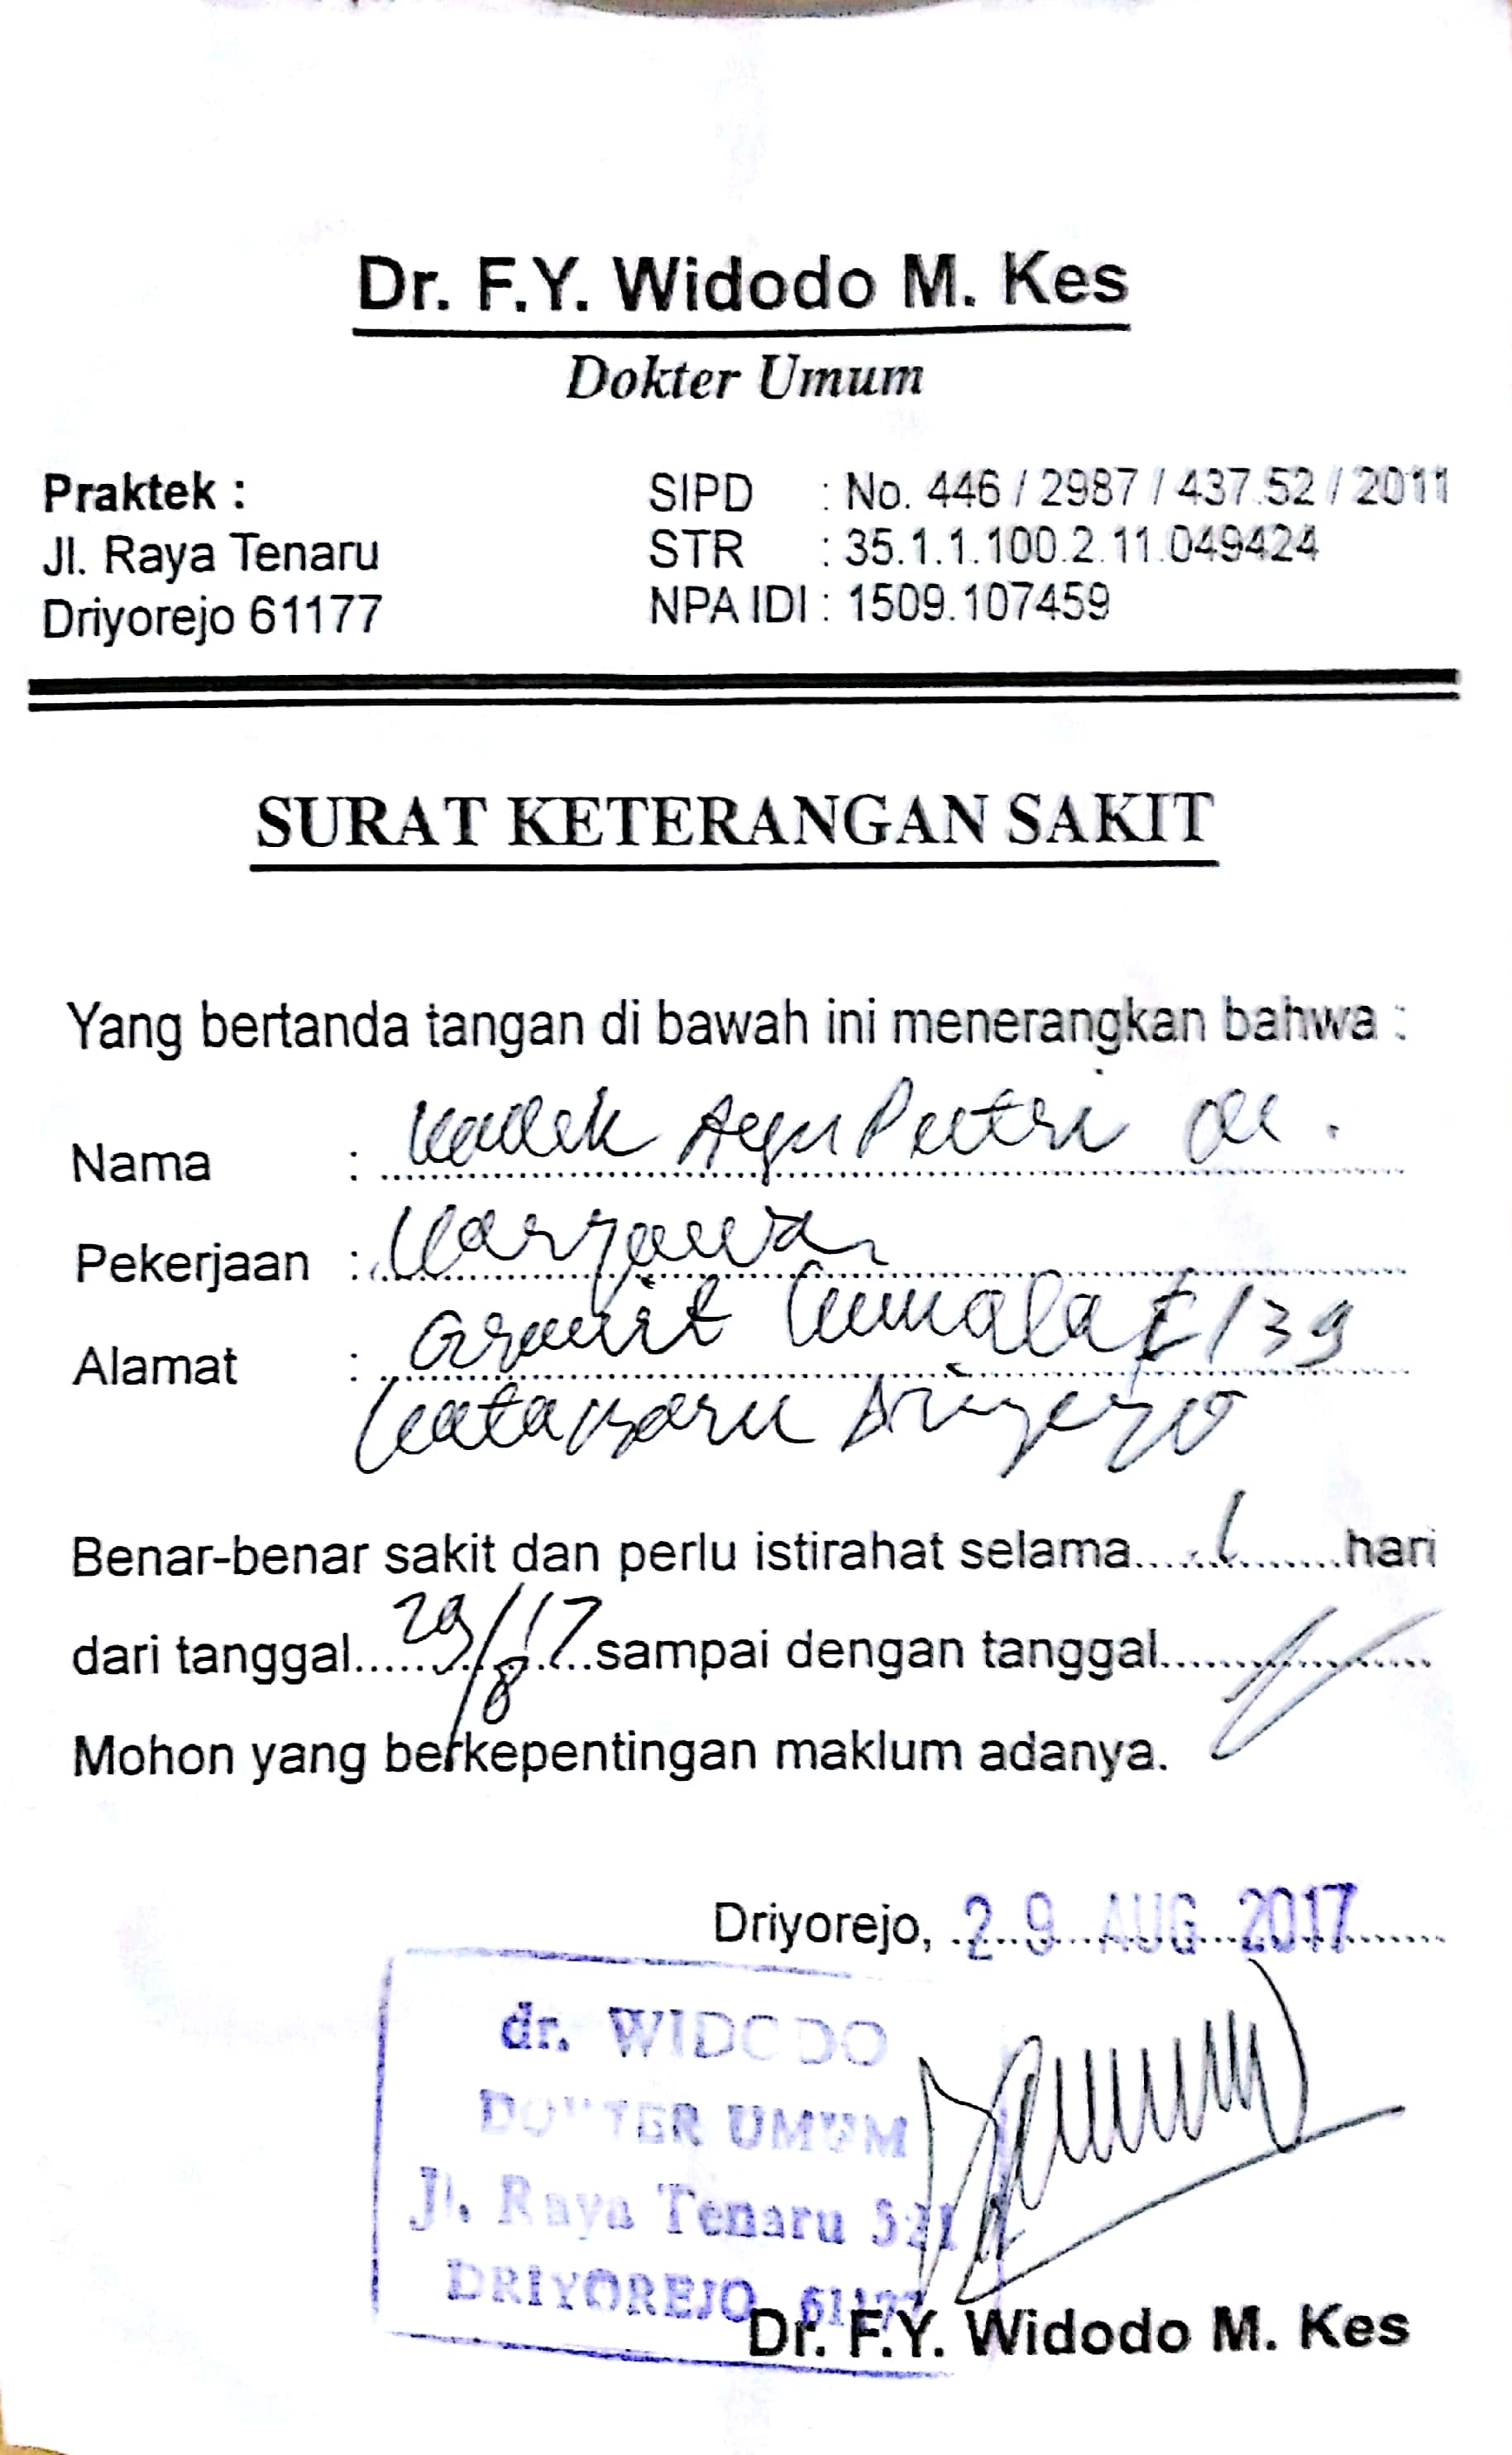 Dr. F.Y. Widodo M. Kes
Dokter Umum
Praktek :
Jl. Raya Tenaru
Driyorejo 61177
SIPD : No. 446 / 2987 / 437.52 / 2011
STR : 35.1.1.100.2.11.049424
NPA IDI : 1509.107459
SURAT KETERANGAN SAKIT
Yang bertanda tangan di bawah ini menerangkan bahwa :
Nama : Kadek Ayu Putri
Pekerjaan : Karyawan
Alamat : Granit Kumala /39
Kotabaru Driyorejo
Benar-benar sakit dan perlu istirahat selama 1 hari
dari tanggal 29/8 17 sampai dengan tanggal
Mohon yang berkepentingan maklum adanya.
Driyorejo, 29 AUG 2017
dr. WIDODO
DOKTER UMUM
Jl. Raya Tenaru 521
DRIYOREJO 61177
Dr. F.Y. Widodo M. Kes